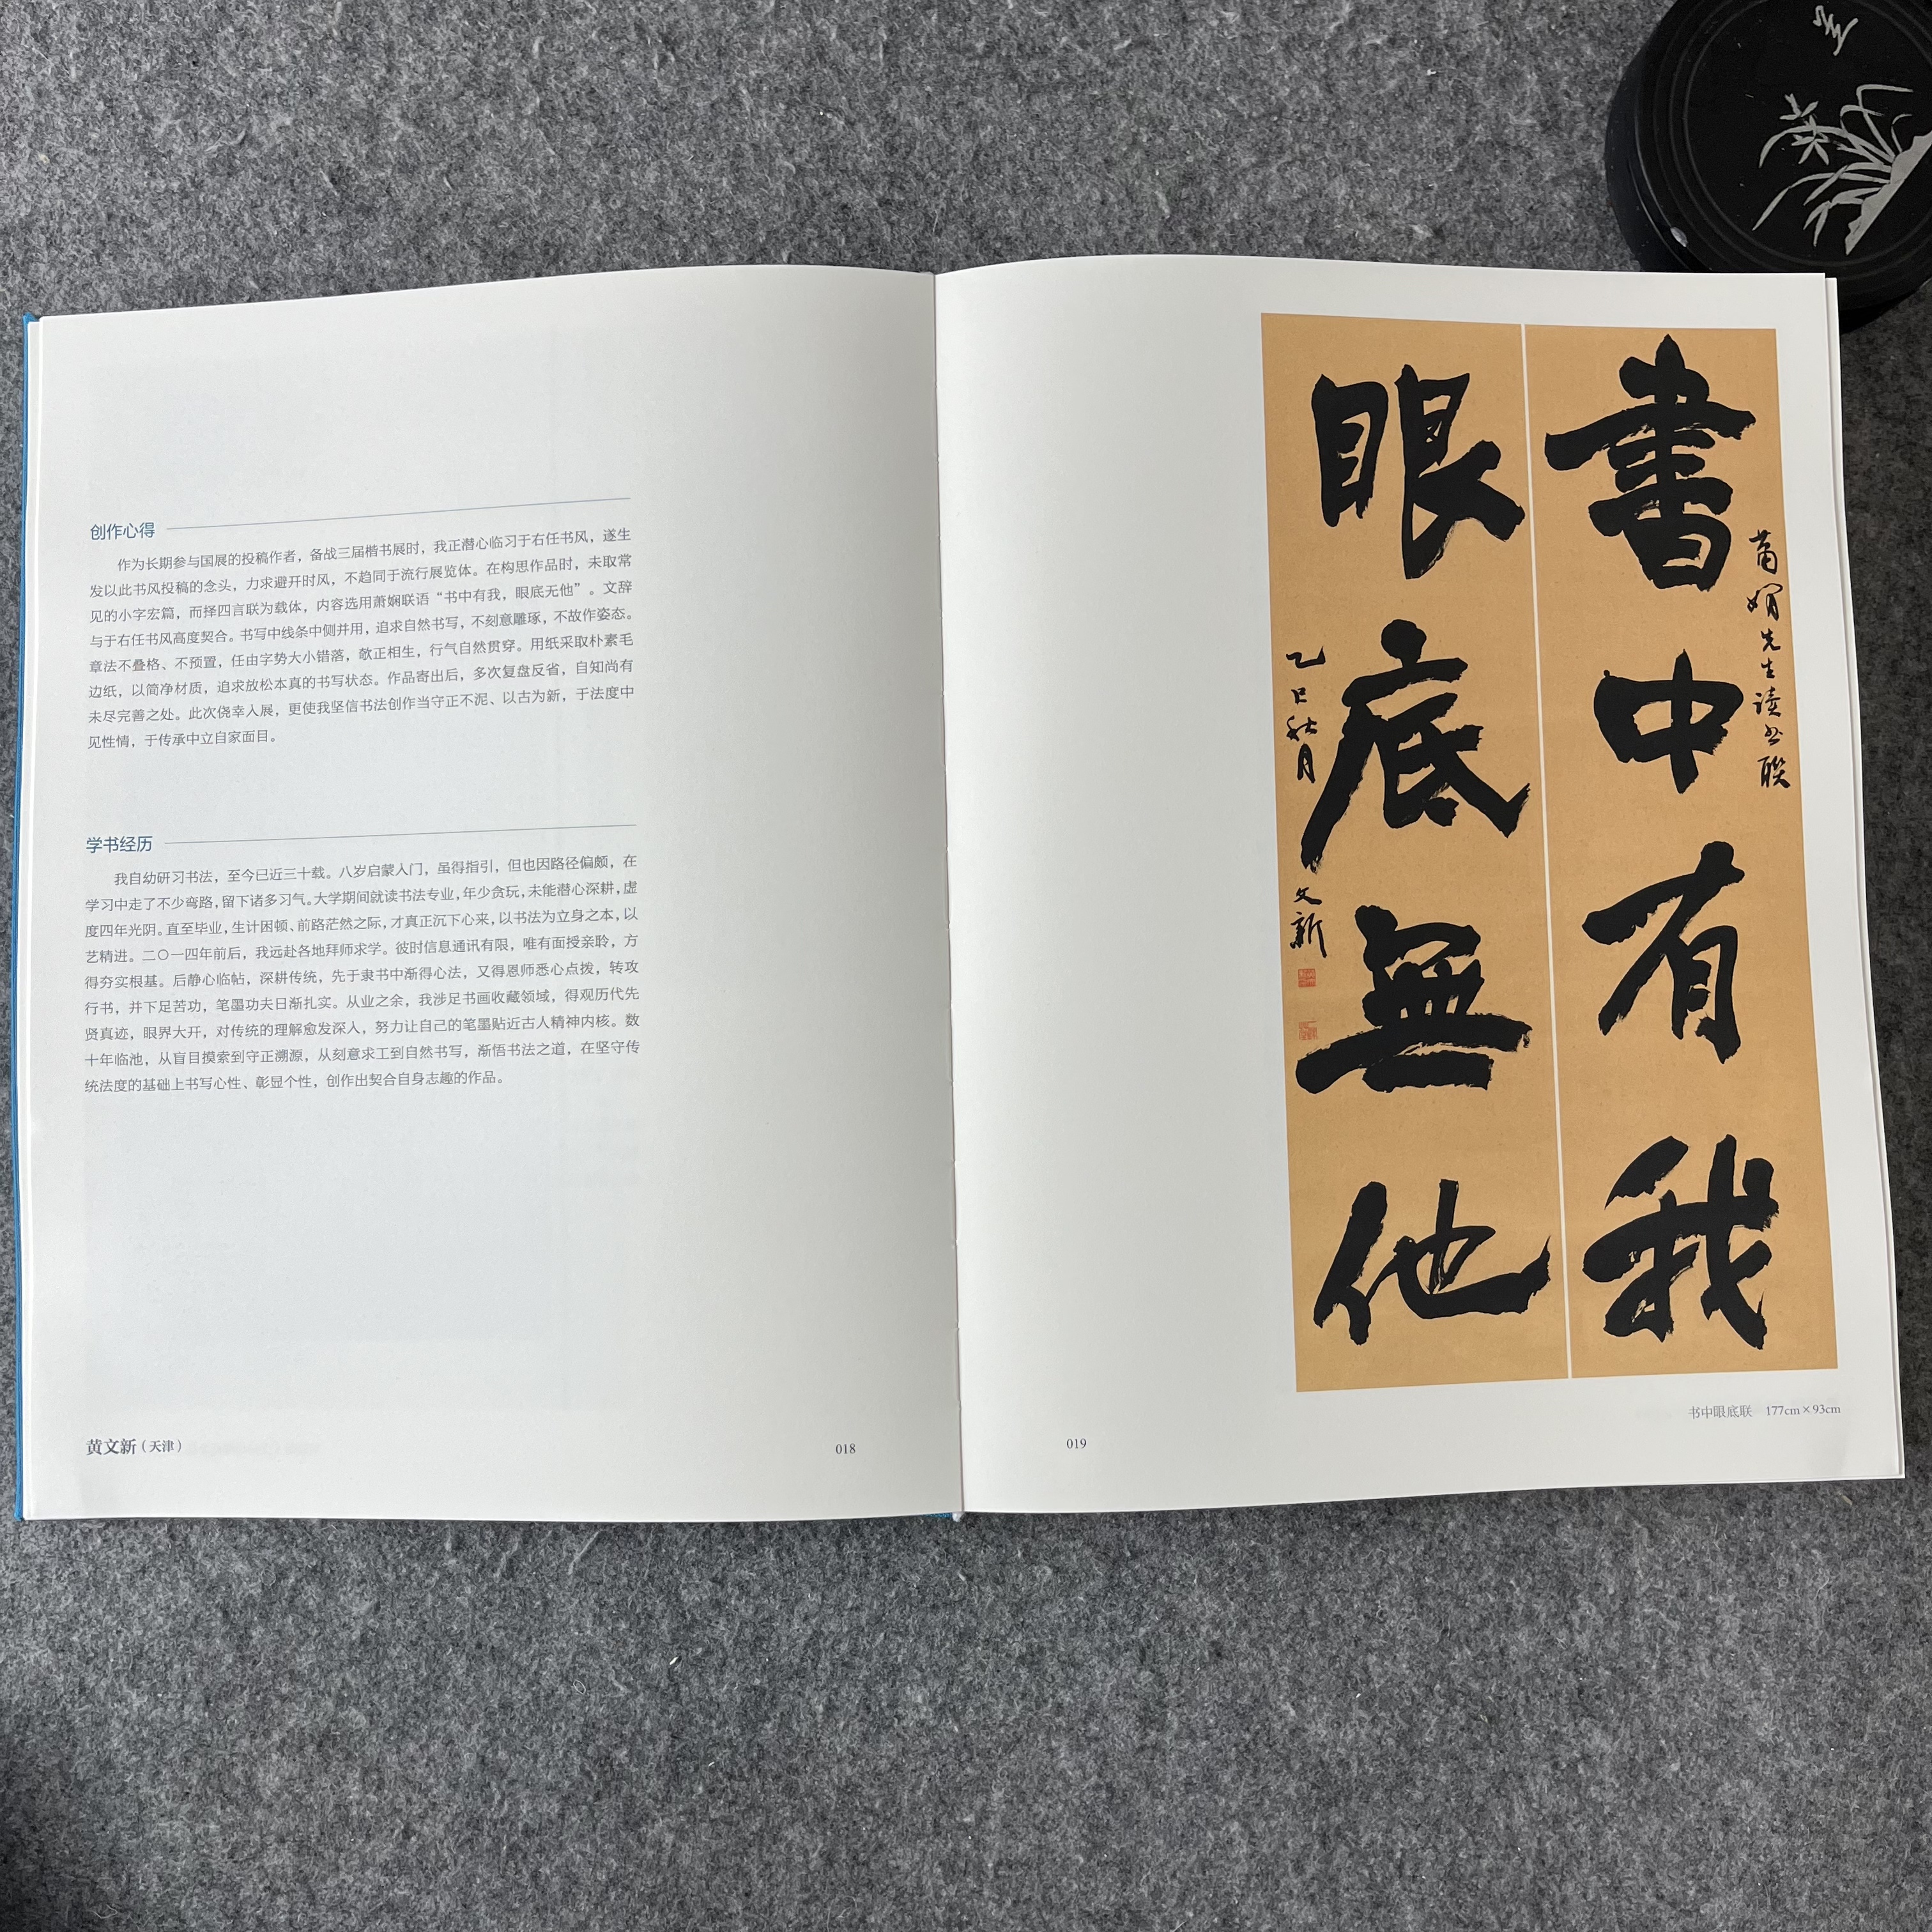 创作心得
作为长期参与国展的投稿作者，备战三届楷书展时，我正潜心临习于右任书风，遂生
发以此书风投稿的念头，力求避开时风，不趋同于流行展览体。在构思作品时，未取常
见的小字宏篇，而择四言联为载体，内容选用萧娴联语“书中有我，眼底无他”。文辞
与于右任书风高度契合。书写中线条中侧并用，追求自然书写，不刻意雕琢，不故作姿态。
章法不叠格、不预置，任由字势大小错落，欹正相生，行气自然贯穿。用纸采取朴素毛
边纸，以简净材质，追求放松本真的书写状态。作品寄出后，多次复盘反省，自知尚有
未尽完善之处。此次侥幸入展，更使我坚信书法创作当守正不泥、以古为新，于法度中
见性情，于传承中立自家面目。
学书经历
我自幼研习书法，至今已近三十载。八岁启蒙入门，虽得指引，但也因路径偏颇，在
学习中走了不少弯路，留下诸多习气。大学期间就读书法专业，年少贪玩，未能潜心深耕，虚
度四年光阴。直至毕业，生计困顿、前路茫然之际，才真正沉下心来，以书法为立身之本，以
艺精进。二〇一四年前后，我远赴各地拜师求学。彼时信息通讯有限，唯有面授亲聆，方
得夯实根基。后静心临帖，深耕传统，先于隶书中渐得心法，又得恩师悉心点拨，转攻
行书，并下足苦功，笔墨功夫日渐扎实。从业之余，我涉足书画收藏领域，得观历代先
贤真迹，眼界大开，对传统的理解愈发深入，努力让自己的笔墨贴近古人精神内核。数
十年临池，从盲目摸索到守正溯源，从刻意求工到自然书写，渐悟书法之道，在坚守传
统法度的基础上书写心性、彰显个性，创作出契合自身志趣的作品。
黄文新（天津）
018
萧娴先生读书联
書中有我
眼底無他
乙巳秋月
文新
书中眼底联 177cm×93cm
019